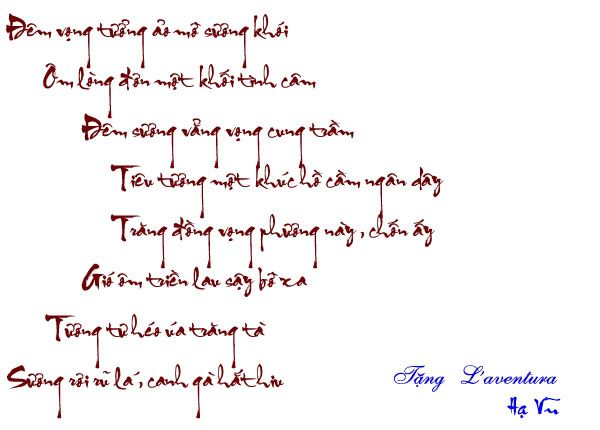 Đêm vọng tưởng ảo mờ sương khói
Ôm lòng đơn một khối tình câm
Đêm sương vẳng vọng cung trầm
Tiêu tương một khúc hồ cầm ngân dây
Trăng đồng vọng phương này, chốn ấy
Gió ôm triền lau sậy bờ xa
Tương tư héo úa trăng tà
Sương rơi rũ lá, canh gà hắt hiu
Tặng L'aventura
Hạ Vũ